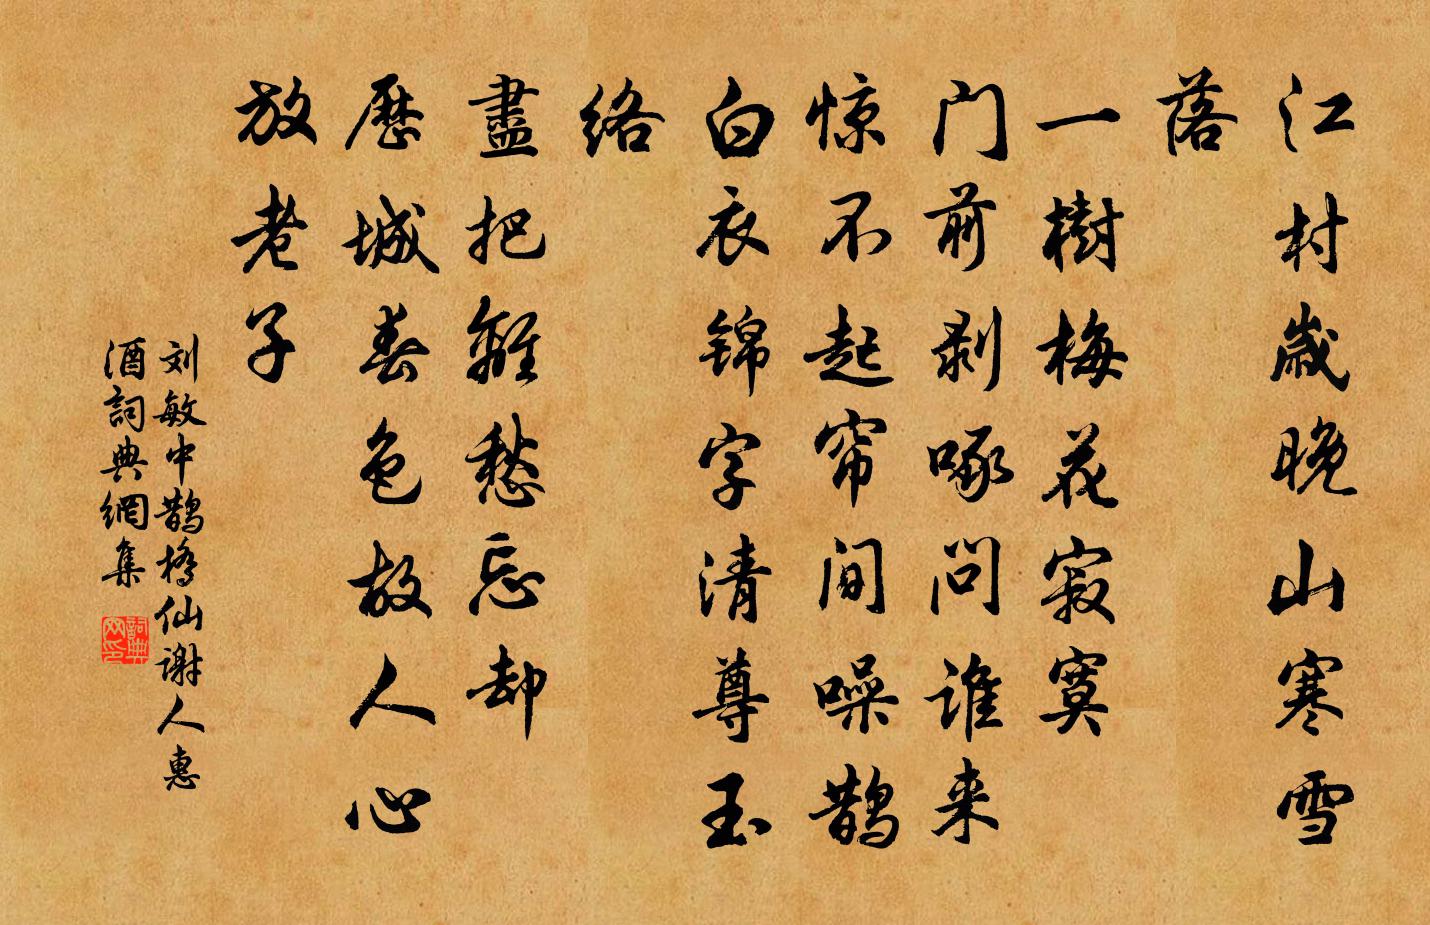 江村歲晚山寒雪
落
一樹梅花寂寞
门前剥啄问谁来
惊不起帘间噪鹊
白衣锦字清尊玉
络
盡把離愁忘却
歷城春色故人心
放老子
刘敏中鹊橋仙谢人惠
酒詞典網集